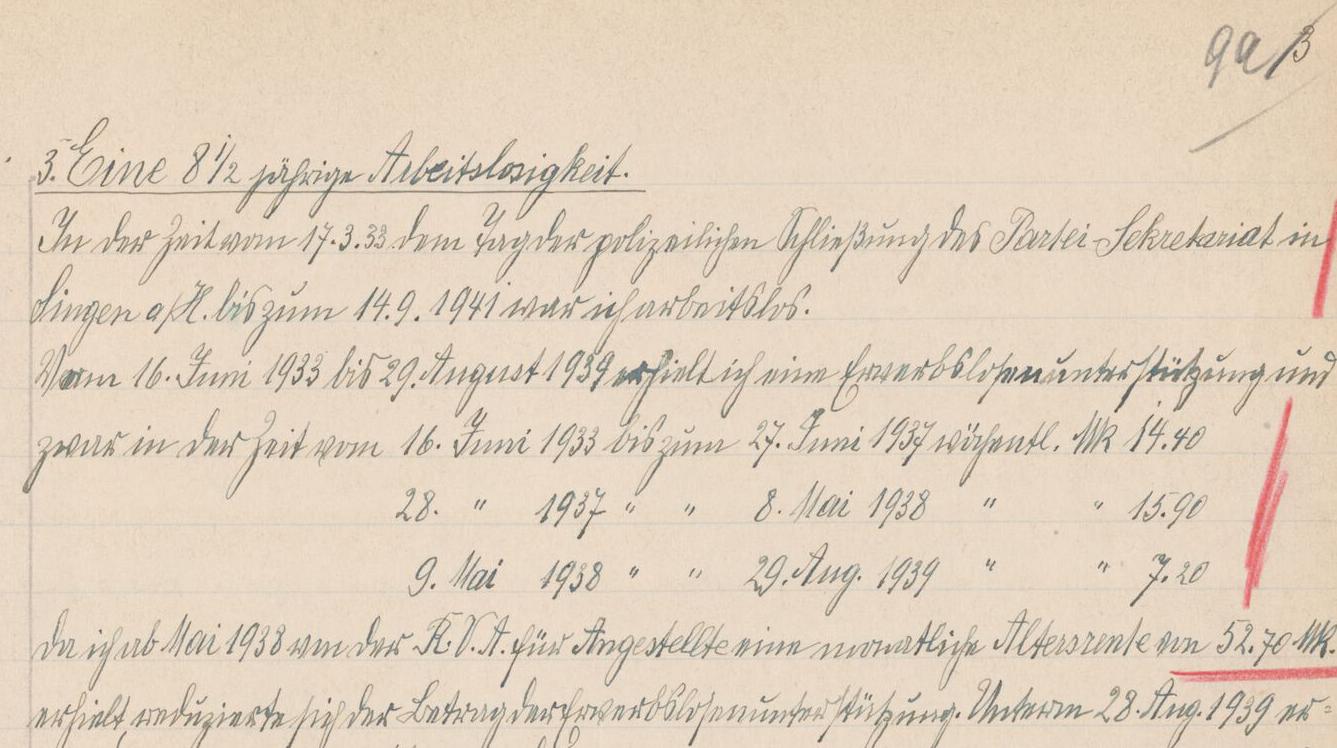 9a/3
3. Eine 8 1/2 jährige Arbeitslosigkeit.
In der Zeit vom 17.3.33 dem Tag der polizeilichen Schließung des Partei-Sekretariat in
Singen a/H. bis zum 14.9.1941 war ich arbeitslos.
Vom 16. Juni 1933 bis 29. August 1939 erhielt ich eine Erwerbslosenunterstützung und
zwar in der Zeit vom 16. Juni 1933 bis zum 27. Juni 1937 wöchentl. Mk 14.40
28. " 1937 " " 8. Mai 1938 " " 15.90
9. Mai 1938 " " 29. Aug. 1939 " " 7.20
Da ich ab Mai 1938 von der R.V.A. für Angestellte eine monatliche Altersrente von 52.70 Mk.
erhielt, reduzierte sich der Betrag der Erwerbslosenunterstützung. Unterm 28. Aug. 1939 er=